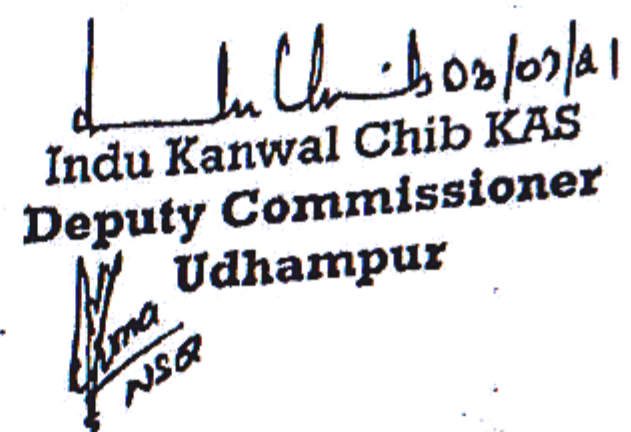 Indu Chib 03/07/21
Indu Kanwal Chib KAS
Deputy Commissioner
Udhampur
NSQ